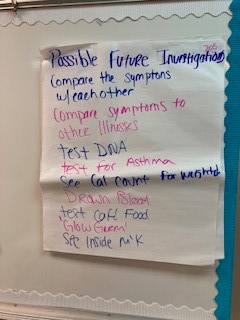 Possible Future Investigations
Compare the symptoms
w/each other
Compare symptoms to
other Illnesses
test DNA
test for Asthma
See Cal count For weight
Drawn Blood
test Café Food
Glow Germ
See Inside